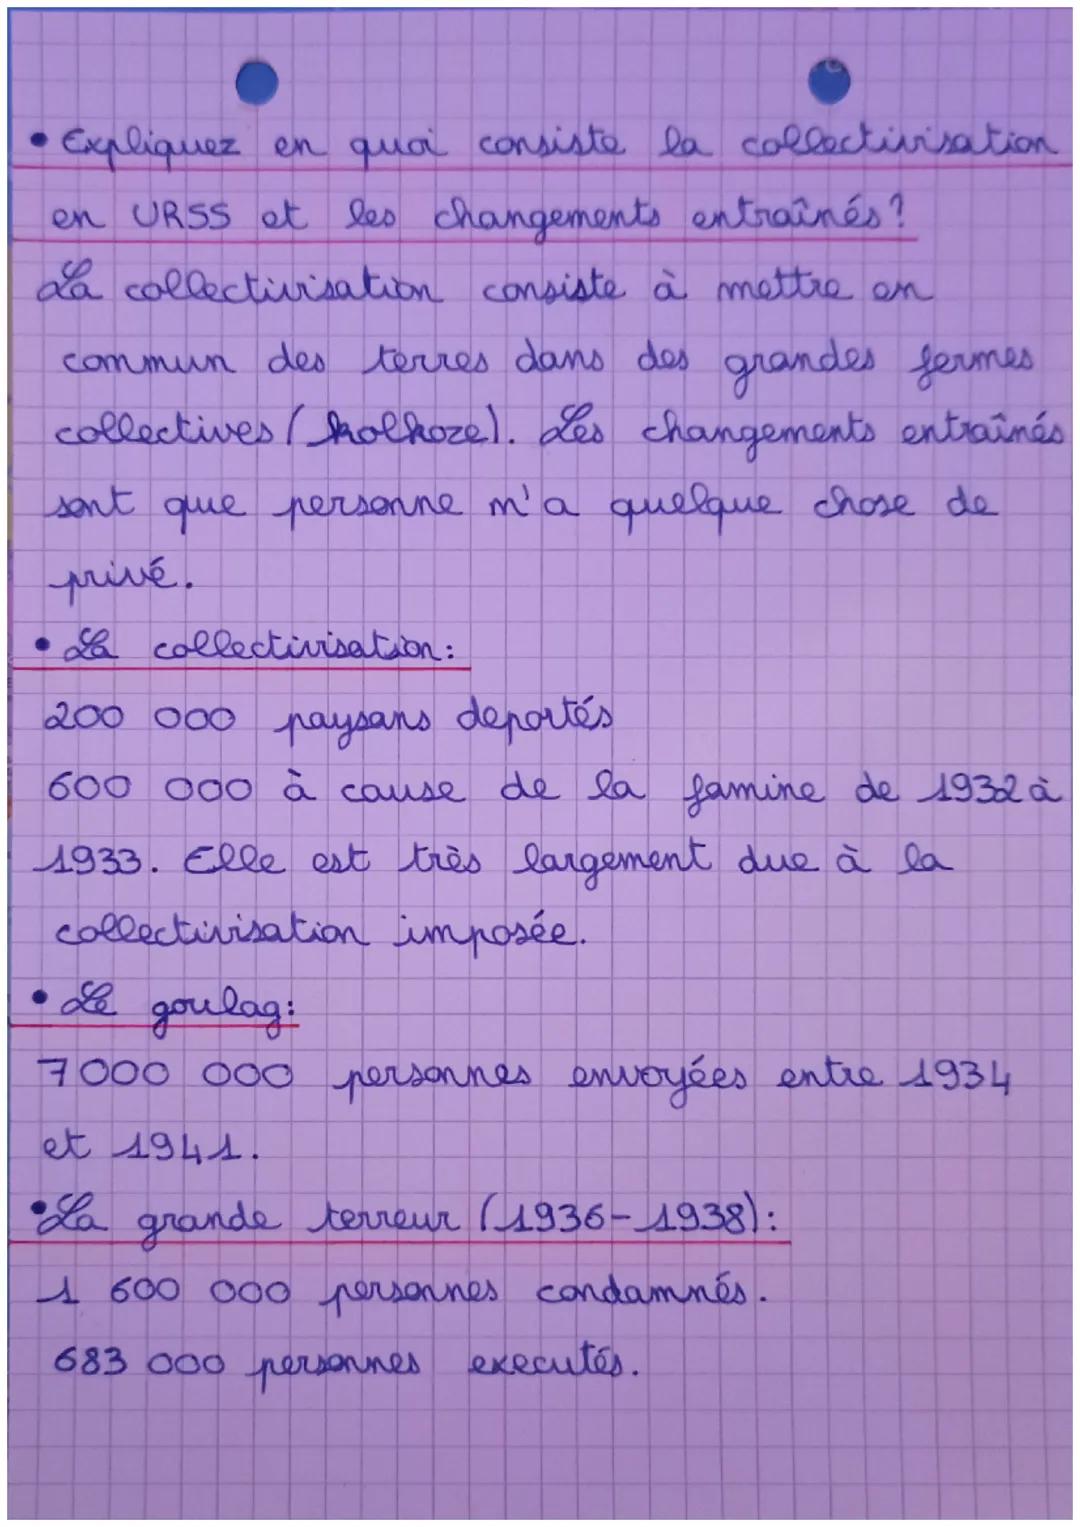 • Expliquez en quoi consiste la collectivisation
en URSS et les changements entraînés?
La collectivisation consiste à mettre en
commun des terres dans des grandes fermes
collectives (kolkhoze). Les changements entraînés
sont que personne n'a quelque chose de
privé.
• La collectivisation:
200 000 paysans deportés
600 000 à cause de la famine de 1932 à
1933. Elle est très largement due à la
collectivisation imposée.
• Le goulag:
7000 000 personnes envoyées entre 1934
et 1941.
• La grande terreur (1936-1938):
1 600 000 personnes condamnés.
683 000 personnes executés.